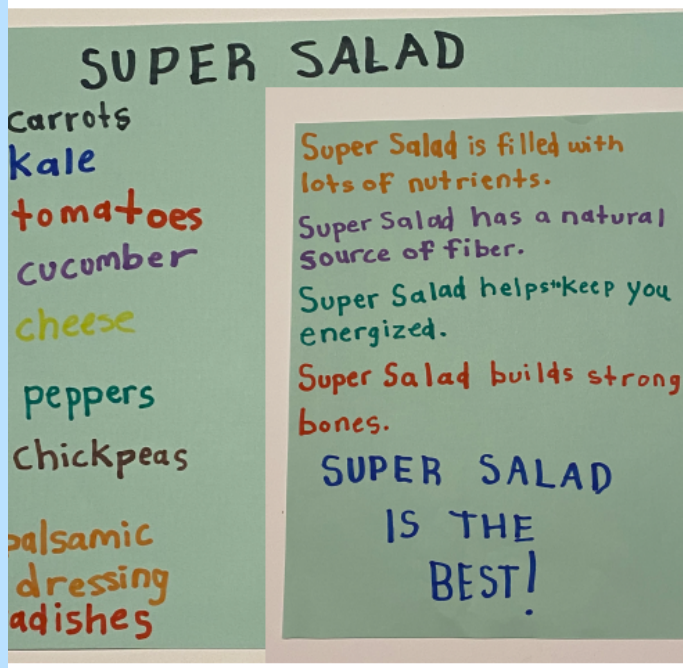 SUPER SALAD
carrots
kale
tomatoes
cucumber
cheese
peppers
chickpeas
balsamic
dressing
radishes
Super Salad is filled with
lots of nutrients.
Super Salad has a natural
source of fiber.
Super Salad helps to keep you
energized.
Super Salad builds strong
bones.
SUPER SALAD
IS THE
BEST!